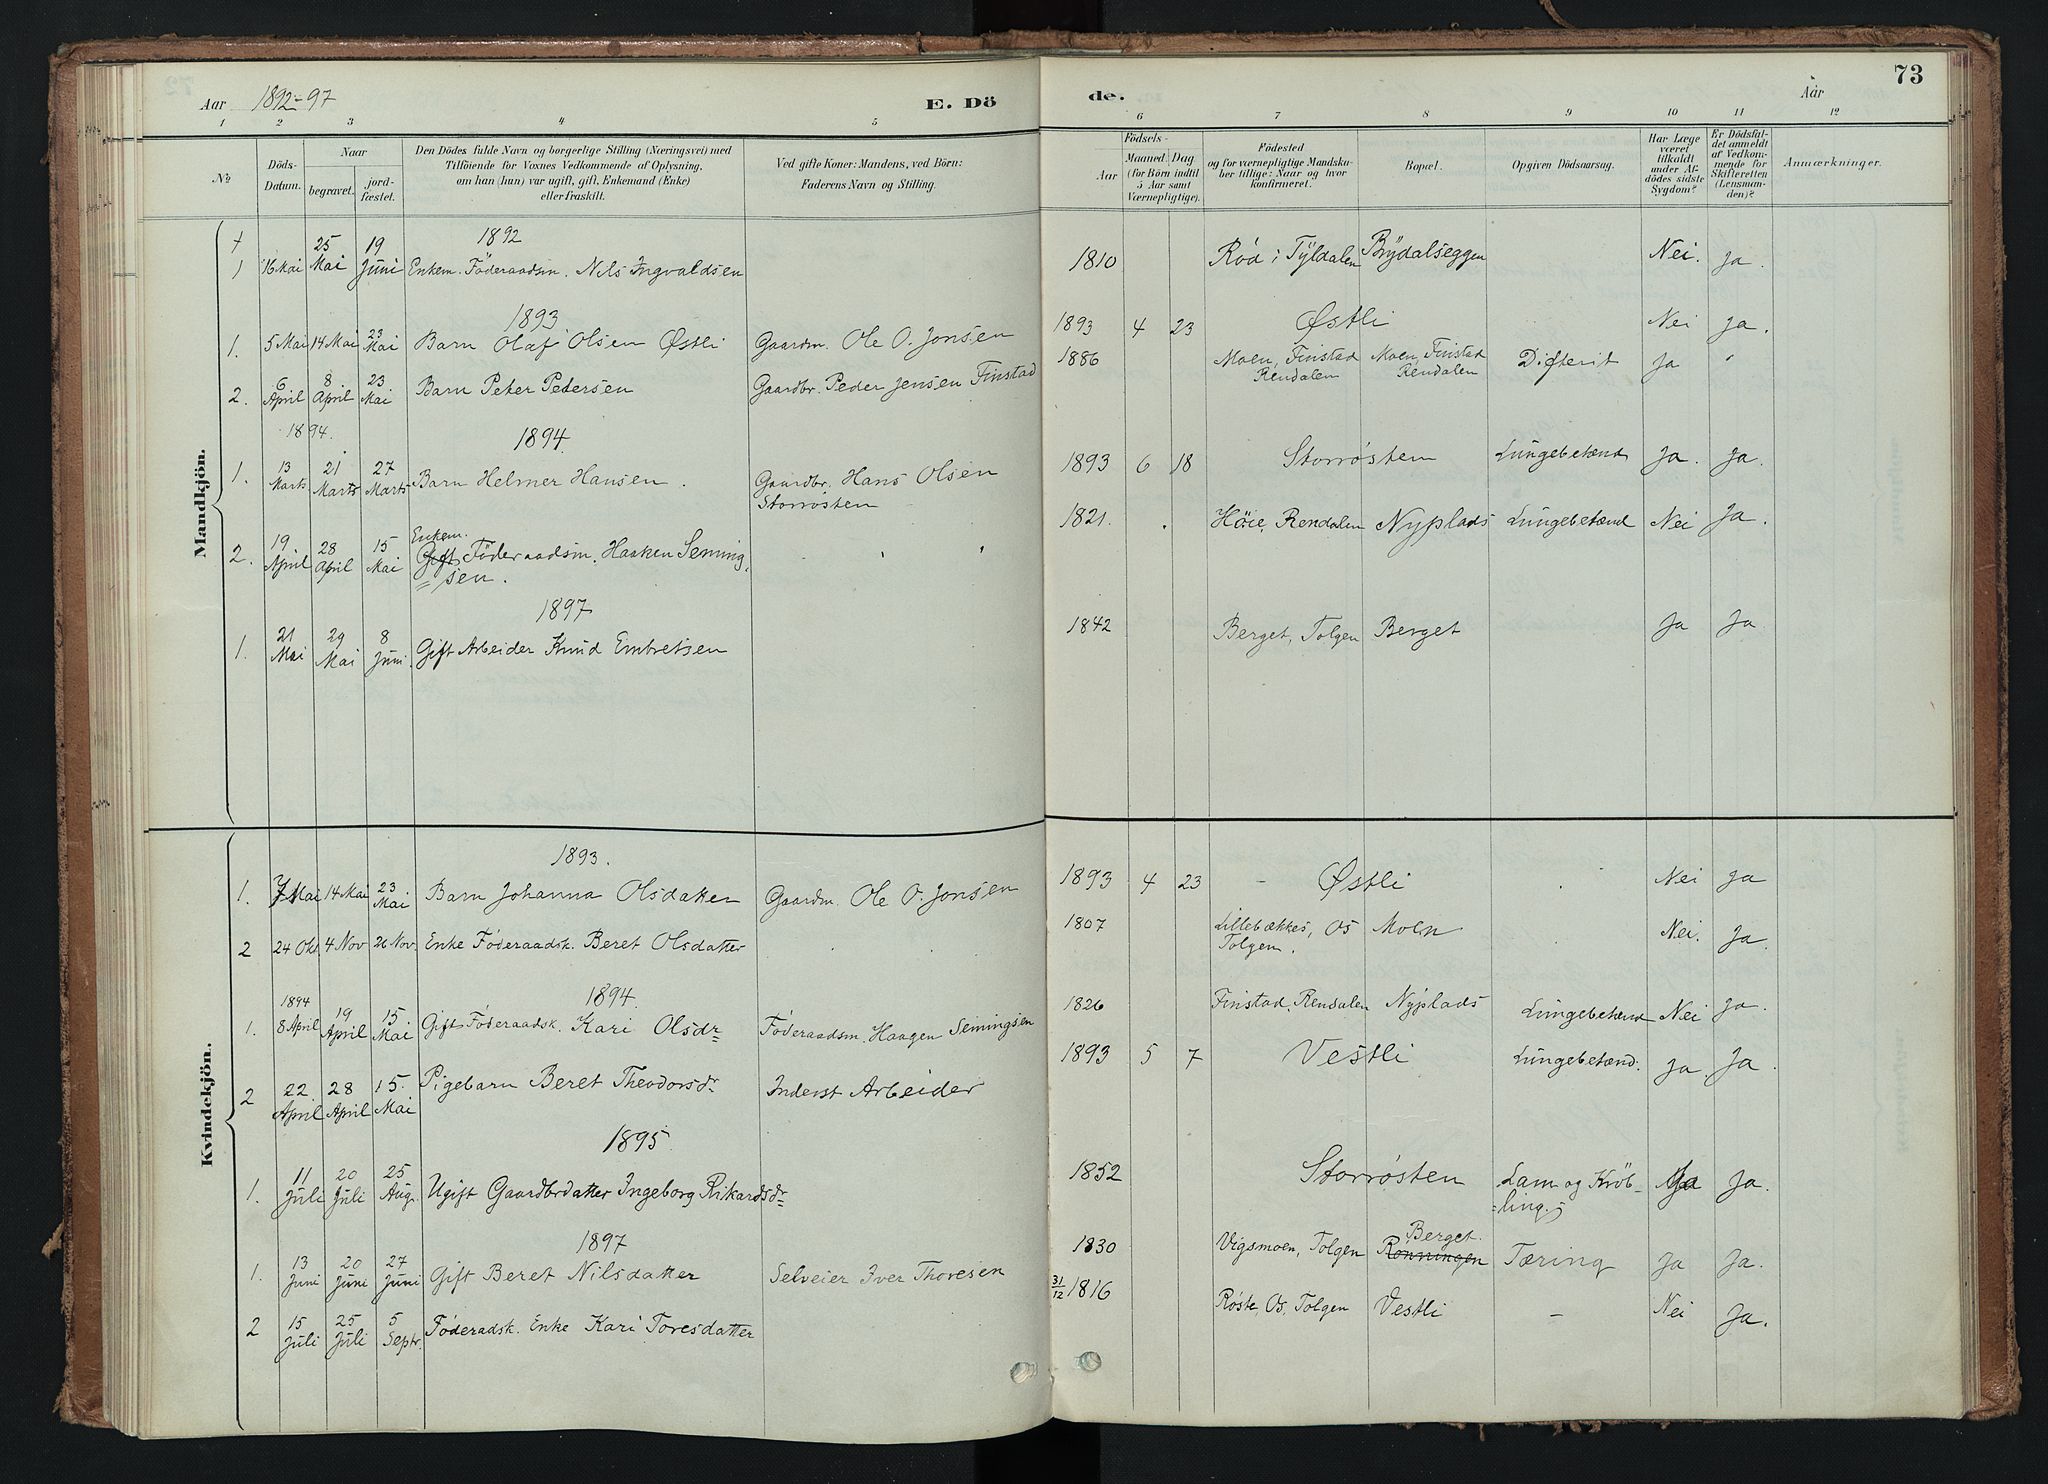 Aar 1892-97
E. Dö
de.
Aar
73
1 2 3 4 5 6 7 8 9 10 11 12
No
Döds-Datum.
Naar
begravet.
jord-fæstet.
Den Dödes fulde Navn og borgerlige Stilling (Næringsvei) med
Tilföiende for Voxnes Vedkommende af Oplysning,
om han (hun) var ugift, gift, Enkemand (Enke)
eller fraskilt.
Ved gifte Koner: Mandens, ved Börn:
Faderens Navn og Stilling.
Födsels-
Aar
Maaned. Dag
(for Börn indtil
5 Aar samt
Værnepligtige).
Födested
og for værnepligtige Mandska-
ber tillige: Naar og hvor
konfirmeret.
Bopæl.
Opgiven Dödsaarsag.
Har Læge
været
tilkaldt
under Af-
dödes sidste
Sygdom?
Er Dödsfal-
det anmeldt
af Vedkom-
mende for
Skifteretten
(Lensman-
den)?
Anmærkninger.
Mandkjön.
1892
1 16 Mai 25 Mai 19 Juni Enkem. Föderaadsm. Nils Ingvaldsen 1810 Rød i Tyldalen Brydalseggen Nei. Ja.
1893
1. 5 Mai 14 Mai 23 Mai Barn Olaf Olsen Østli Gaardm. Ole O. Jonsen 1893 4 23 Østli Nei Ja.
2. 6 April 8 April 23 Mai Barn Peter Pedersen Gaardbr. Peder Jensen Finstad 1886 Moen, Finstad Rendalen Moen, Finstad Rendalen Difterit Ja "
1894. 1894.
1. 13 Marts 21 Marts 27 Marts Barn Helmer Hansen. Gaardbr. Hans Olsen Storrøsten 1893 6 18 Storrøsten Lungebetænd Ja. Ja.
2. 19 April 28 April 15 Mai Enkem. Gift Föderaadsm. Haaken Semingsen. 1821. Höie, Rendalen Nyplads Lungebetænd Nei Ja.
1897
1. 21 Mai 29 Mai 8 Juni. Gift Arbeider Knud Embretsen 1842 Berget, Tolgen Berget Ja Ja
Kvindekjön.
1893.
1. 7 Mai 14 Mai 23 Mai Barn Johanna Olsdatter Gaardm. Ole O. Jonsen 1893 4 23 - Østli Nei Ja
2 24 Okt 4 Nov 26 Nov. Enke Föderaadsk. Beret Olsdatter 1807 Lillebækkes, Os Tolgen. Moen Nei. Ja.
1894 1894.
1. 8 April 19 April 15 Mai Gift Föderaadsk. Kari Olsdr Föderaadsm. Haagen Semingsen 1826 Finstad, Rendalen Nyplads Lungebetænd Nei Ja.
2 22 April 28 April 15. Mai Pigebarn Beret Theodorsdr Inderst Arbeider 1893 5 7 Vestli Lungebetænd. Ja. Ja.
1895
1. 11 Juli 20 Juli 25 Aug. Ugift Gaardbrdatter Ingeborg Rikardsdr 1852 Storrøsten Lam og Kröb-ling. Ja Ja.
1897
1. 13 Juni 20 Juni 27 Juni Gift Beret Nilsdatter Selveier Iver Thoresen 1830 Vigsmoen, Tolgen Berget. Rønningen Tæring Ja Ja.
2 15 Juli 25 Juli 5 Septr. Föderaadsk. Enke Kari Toresdatter 31/12 1816 Røste Os, Tolgen Vestli - Nei Ja.